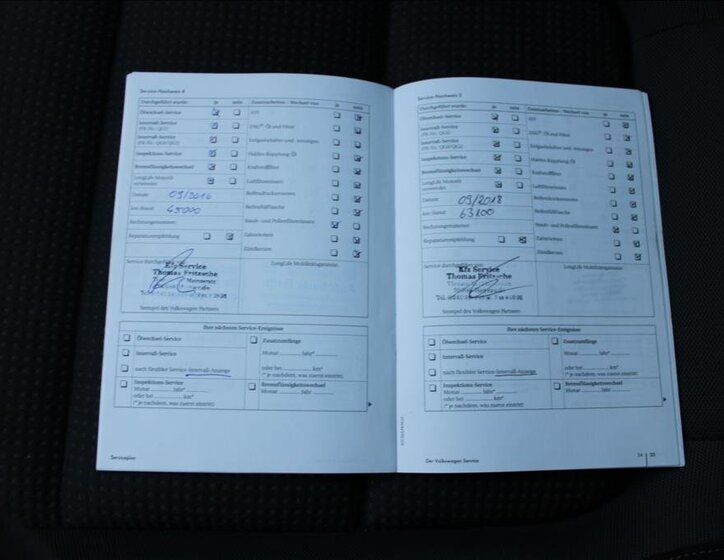 Service-Nachweis 4
Durchgeführt wurde: ja nein
Ölwechsel-Service
Intervall-Service
(PR-Nr.: QG1)
Intervall-Service
(PR-Nr.: QG0/QG2)
Inspektions-Service
Bremsflüssigkeitswechsel
LongLife Motoröl
verwendet
Datum: 09/2016
km-Stand: 45000
Rechnungsnummer:
Reparaturempfehlung
Zusatzarbeiten - Wechsel von: ja nein
DSG® Öl und Filter
Haldex Kupplung Öl
Kraftstofffilter
Luftfiltereinsatz
Reifendrucksensoren
Reifenfüllflasche
Staub- und Pollenfiltereinsatz
Zahnriemen
Zündkerzen
Service durchgeführt von:
Kfz Service
Thomas Fritzsche
LongLife Mobilitätsgarantie:
Stempel des Volkswagen Partners
Ihre nächsten Service-Ereignisse
Ölwechsel-Service
Intervall-Service
nach flexibler Service-Intervall-Anzeige
Inspektions-Service
Monat Jahr*
oder bei km*
(* je nachdem, was zuerst eintritt)
Zusatzumfänge
Monat Jahr*
oder bei km*
(* je nachdem, was zuerst eintritt)
Bremsflüssigkeitswechsel
Monat Jahr
Serviceplan
Service-Nachweis 5
Durchgeführt wurde: ja nein
Ölwechsel-Service
Intervall-Service
(PR-Nr.: QG1)
Intervall-Service
(PR-Nr.: QG0/QG2)
Inspektions-Service
Bremsflüssigkeitswechsel
LongLife Motoröl
verwendet
Datum: 09/2018
km-Stand: 63100
Rechnungsnummer:
Reparaturempfehlung
Zusatzarbeiten - Wechsel von: ja nein
DSG® Öl und Filter
Haldex Kupplung Öl
Kraftstofffilter
Luftfiltereinsatz
Reifendrucksensoren
Reifenfüllflasche
Staub- und Pollenfiltereinsatz
Zahnriemen
Zündkerzen
Service durchgeführt von:
Kfz Service
Thomas Fritzsche
LongLife Mobilitätsgarantie:
Stempel des Volkswagen Partners
Ihre nächsten Service-Ereignisse
Ölwechsel-Service
Intervall-Service
nach flexibler Service-Intervall-Anzeige
Inspektions-Service
Monat Jahr*
oder bei km*
(* je nachdem, was zuerst eintritt)
Zusatzumfänge
Monat Jahr*
oder bei km*
(* je nachdem, was zuerst eintritt)
Bremsflüssigkeitswechsel
Monat Jahr
Der Volkswagen Service